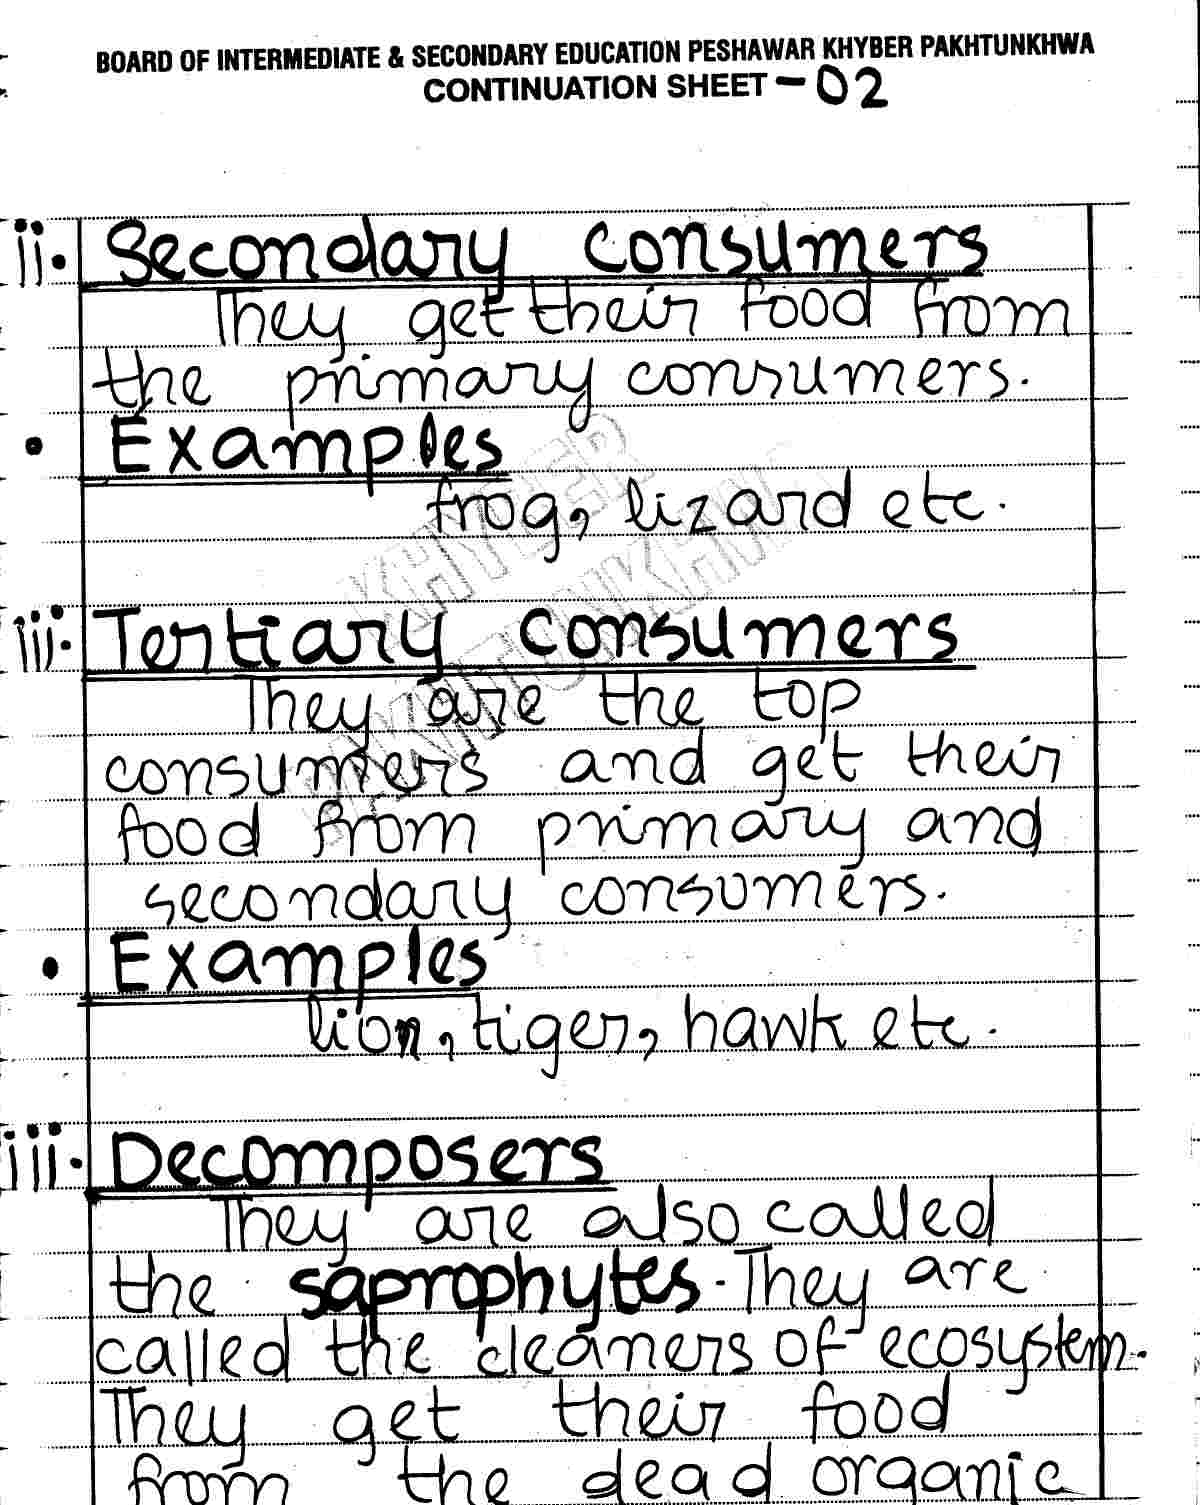 BOARD OF INTERMEDIATE & SECONDARY EDUCATION PESHAWAR KHYBER PAKHTUNKHWA
CONTINUATION SHEET -02
ii. Secondary Consumers
They get their food from
the primary consumers.
• Examples
frog, lizard etc.
KHYBER
PAKHTUNKHWA
iii. Tertiary Consumers
They are the top
consumers and get their
food from primary and
secondary consumers.
• Examples
lion, tiger, hawk etc.
iii. Decomposers
They are also called
the saprophytes. They are
called the cleaners of ecosystem.
They get their food
from the dead organic